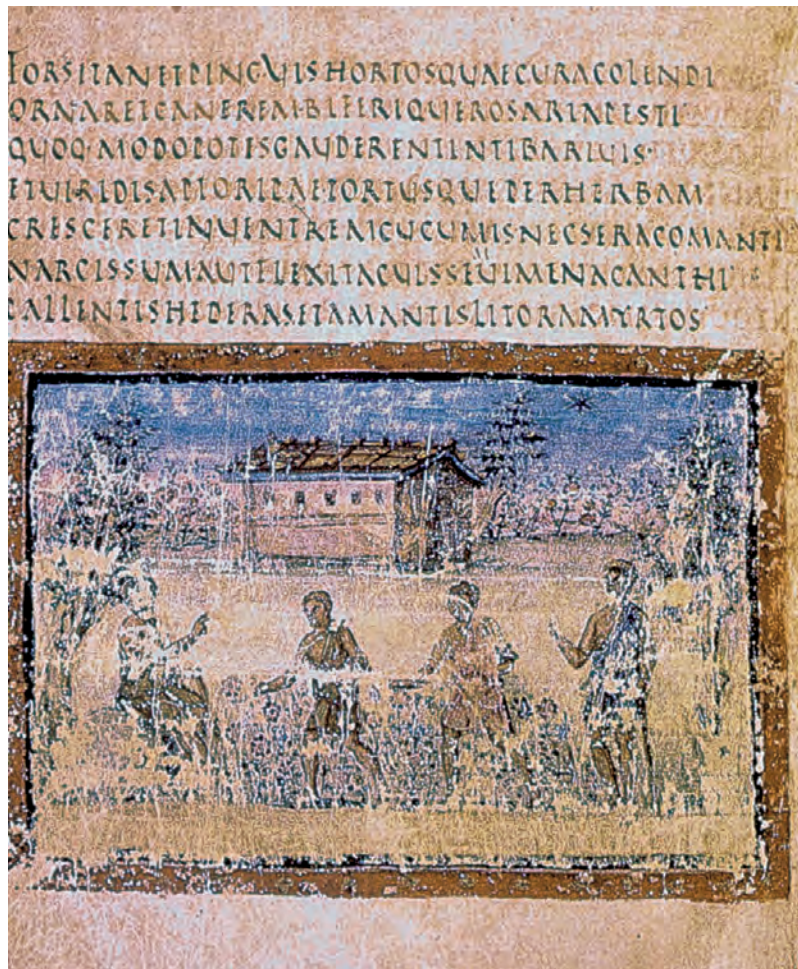 FORSITANETPINGVISHORTOSQVAECVRACOLENDI
ORNARETCANEREMBIFERIQVEROSARIAPESTI
QVOQ·MODOPOTISGAVDERENTINTIBARIVIS·
ETVIRIDISAPIORIPAETORTVSQVEPERHERBAM
CRESCERETINVENTREMCVCVMISNECSERACOMANTI
NARCISSVMAVTFLEXITACVISSEVIMENACANTHI
PALLENTISHEDERASETAMANTISLITORAMYRTOS